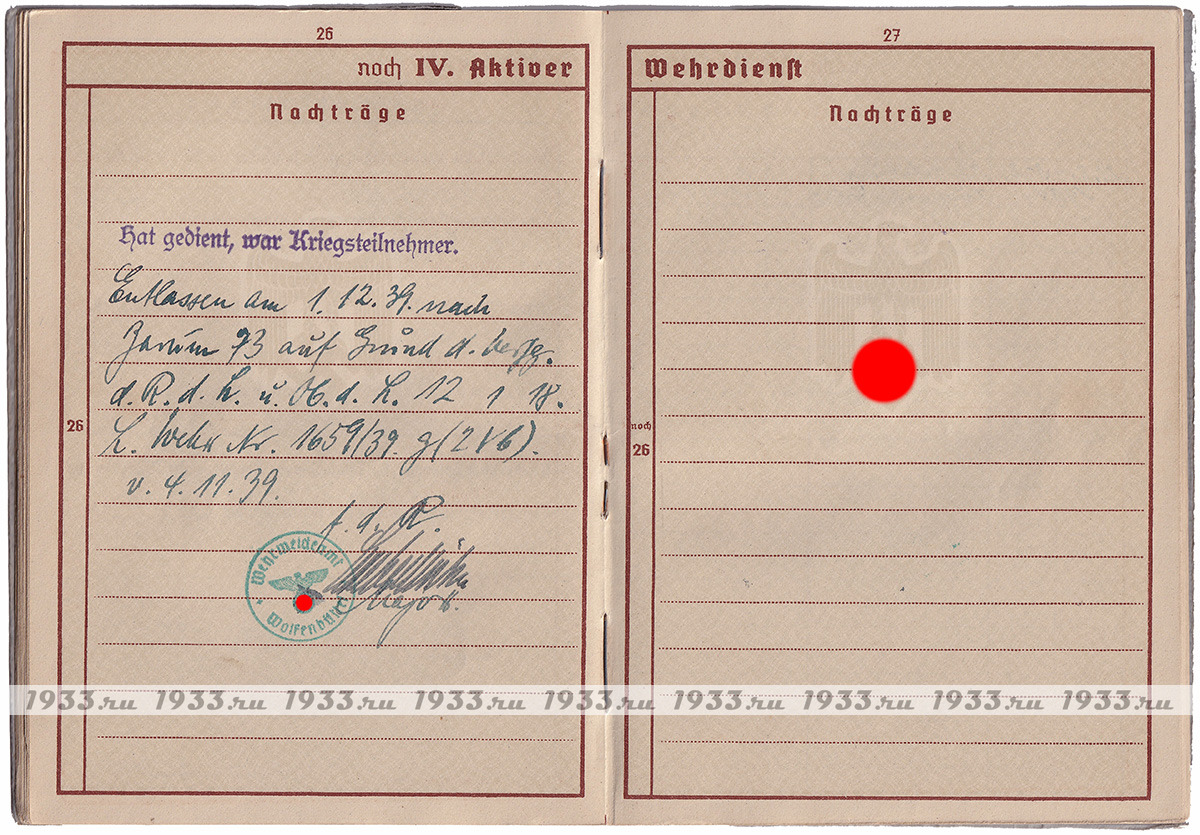 26
noch IV. Aktiver
Nachträge
Hat gedient, war Kriegsteilnehmer.
Entlassen am 1.12.39. nach
73 auf Grund d.
d. R. d. L. u. Ob. d. L. 12 1 18.
L. Wehr Nr. 1659/39. g (2 V 6).
v. 4.11.39.
26
f. d. R.
Major
Wehrmeldeamt
Wolfenbüttel
27
Wehrdienst
Nachträge
noch
26
1933.ru 1933.ru 1933.ru 1933.ru 1933.ru 1933.ru 1933.ru 1933.ru 1933.ru